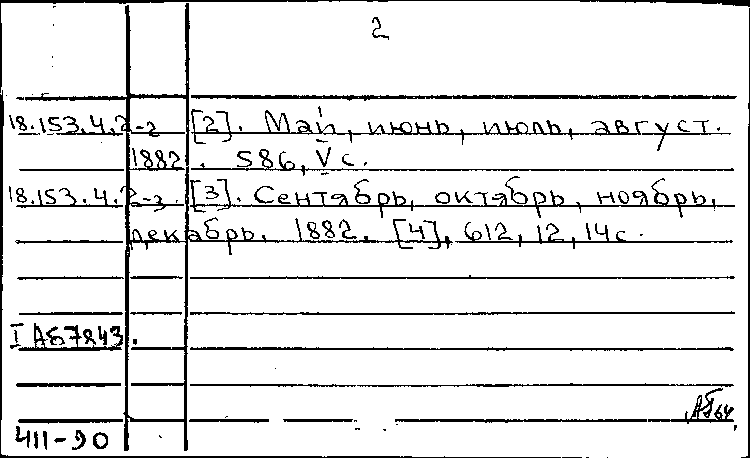 2
18.153.4.2-2 [2]. Май, июнь, июль, август.
1882. 586, V с.
18.153.4.2-3. [3]. Сентябрь, октябрь, ноябрь,
декабрь. 1882. [4], 612, 12, 14 с.
I Аб7843.
411-90